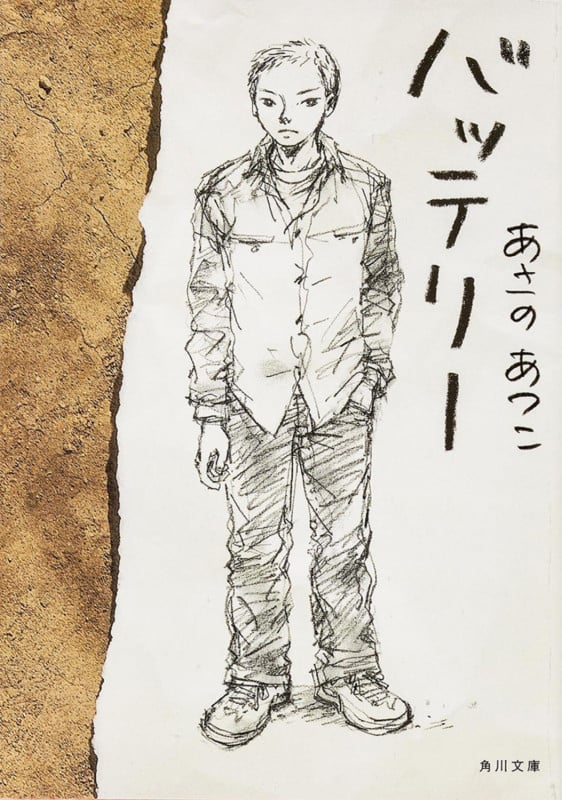 バッテリー
あさの あつこ
角川文庫